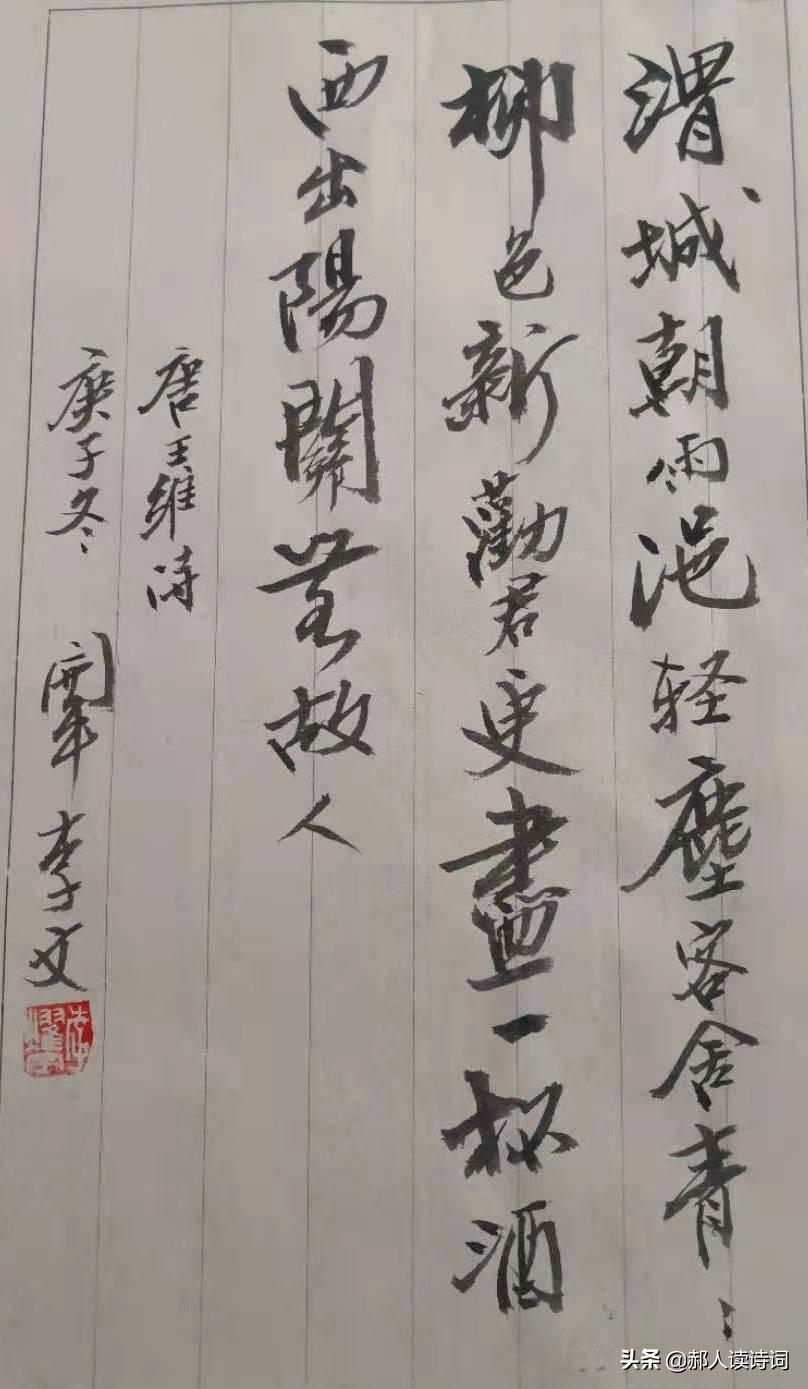 渭城朝雨浥轻塵客舍青〻
柳色新勸君更盡一杯酒
西出陽關無故人
唐王維詩
庚子冬 李文
头条 @郝人读诗词